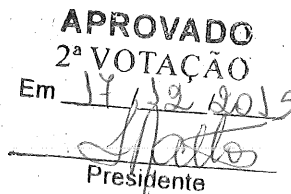 APROVADO
2ª VOTAÇÃO
Em 17, 12, 2015
Presidente